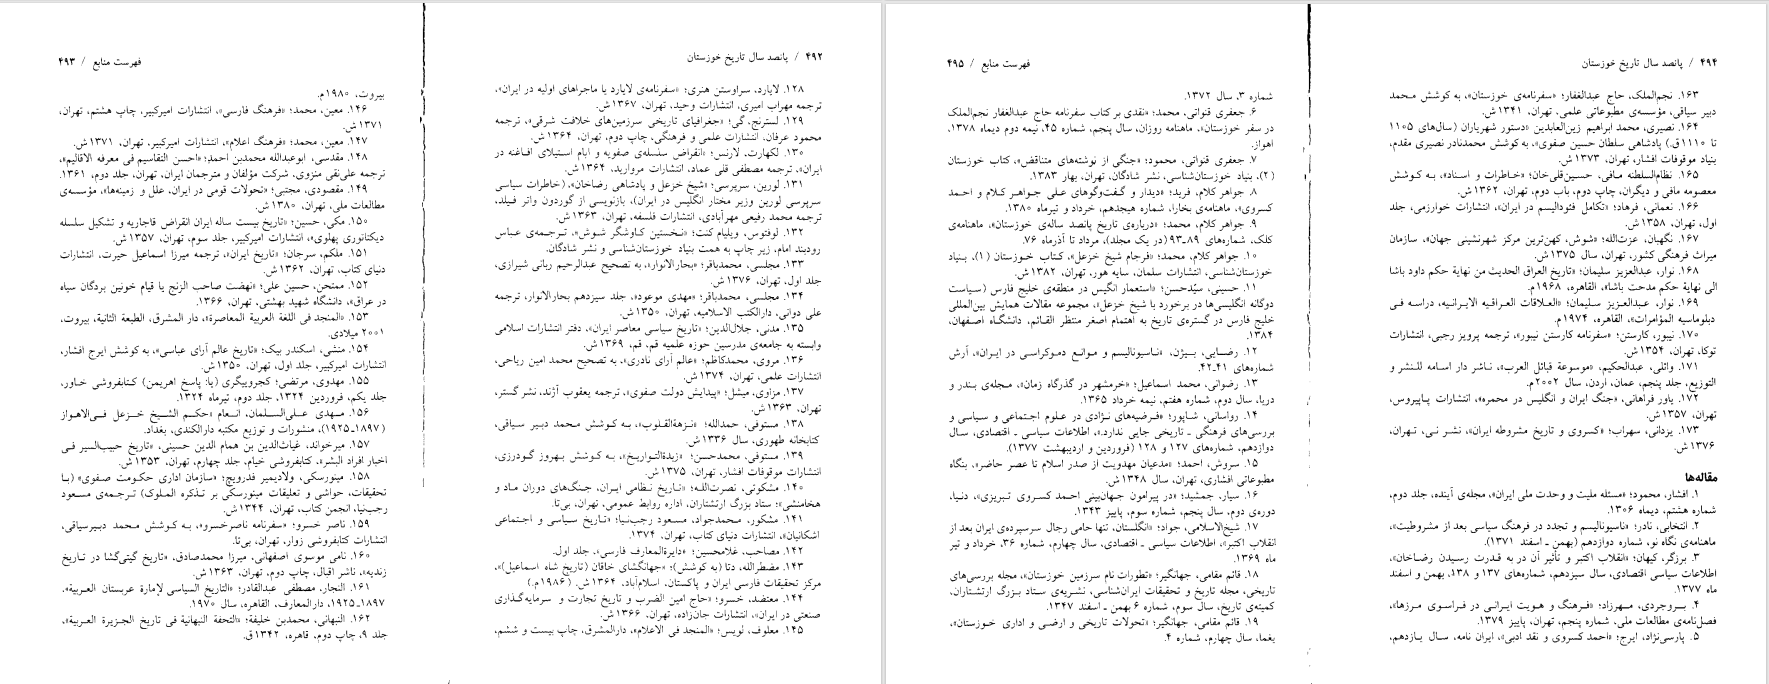 ۴۹۲ / پانصد سال تاریخ خوزستان
۱۲۸. لایارد، سراوستن هنری؛ «سفرنامه‌ی لایارد یا ماجراهای اولیه در ایران»،
ترجمه مهراب امیری، انتشارات وحید، تهران، ۱۳۶۷ ش.
۱۲۹. لسترنج، گی؛ «جغرافیای تاریخی سرزمین‌های خلافت شرقی»، ترجمه
محمود عرفان، انتشارات علمی و فرهنگی، چاپ دوم، تهران، ۱۳۶۴ ش.
۱۳۰. لکهارت، لارنس؛ «انقراض سلسله‌ی صفویه و ایام استیلای افاغنه در
ایران»، ترجمه مصطفی قلی عماد، انتشارات مروارید، ۱۳۶۴ ش.
۱۳۱. لورین، سرپرسی؛ «شیخ خزعل و پادشاهی رضاخان»، (خاطرات سیاسی
سرپرسی لورین وزیر مختار انگلیس در ایران)، بازنویسی از گوردون واتر فیلد،
ترجمه محمد رفیعی مهرآبادی، انتشارات فلسفه، تهران، ۱۳۶۳ ش.
۱۳۲. لوفتوس، ویلیام کنت؛ «نخستین کاوشگر شوش»، ترجمه‌ی عباس
رودبند امام، زیر چاپ به همت بنیاد خوزستان‌شناسی و نشر شادگان.
۱۳۳. مجلسی، محمدباقر؛ «بحارالانوار»، به تصحیح عبدالرحیم ربانی شیرازی،
جلد اول، تهران، ۱۳۷۶ ش.
۱۳۴. مجلسی، محمدباقر؛ «مهدی موعود»، جلد سیزدهم بحارالانوار، ترجمه
علی دوانی، دارالکتب الاسلامیه، تهران، ۱۳۵۰ ش.
۱۳۵. مدنی، جلال‌الدین؛ «تاریخ سیاسی معاصر ایران»، دفتر انتشارات اسلامی
وابسته به جامعه‌ی مدرسین حوزه علمیه قم، قم، ۱۳۶۹ ش.
۱۳۶. مروی، محمدکاظم؛ «عالم آرای نادری»، به تصحیح محمد امین ریاحی،
انتشارات علمی، تهران، ۱۳۷۴ ش.
۱۳۷. مزاوی، میشل؛ «پیدایش دولت صفوی»، ترجمه یعقوب آژند، نشر گستر،
تهران، ۱۳۶۳ ش.
۱۳۸. مستوفی، حمدالله؛ «نزهةالقلوب»، به کوشش محمد دبیر سیاقی،
کتابخانه طهوری، سال ۱۳۳۶ ش.
۱۳۹. مستوفی، محمدحسن؛ «زبدةالتواریخ»، به کوشش بهروز گودرزی،
انتشارات موقوفات افشار، تهران، ۱۳۷۵ ش.
۱۴۰. مشکوتی، نصرت‌الله؛ «تاریخ نظامی ایران، جنگ‌های دوران ماد و
هخامنشی»؛ ستاد بزرگ ارتشتاران، اداره روابط عمومی، تهران، بی‌تا.
۱۴۱. مشکور، محمدجواد، مسعود رجب‌نیا؛ «تاریخ سیاسی و اجتماعی
اشکانیان»، انتشارات دنیای کتاب، تهران، ۱۳۷۴.
۱۴۲. مصاحب، غلامحسین؛ «دایرةالمعارف فارسی»، جلد اول.
۱۴۳. مضطرالله، دتا (به کوشش)؛ «جهانگشای خاقان (تاریخ شاه اسماعیل)»،
مرکز تحقیقات فارسی ایران و پاکستان، اسلام‌آباد، ۱۳۶۴ ش. (۱۹۸۶ م.)
۱۴۴. معتضد، خسرو؛ «حاج امین الضرب و تاریخ تجارت و سرمایه‌گذاری
صنعتی در ایران»، انتشارات جان‌زاده، تهران، ۱۳۶۶ ش.
۱۴۵. معلوف، لویس؛ «المنجد فی الاعلام»، دارالمشرق، چاپ بیست و ششم،
فهرست منابع / ۴۹۳
بیروت، ۱۹۸۰م.
۱۴۶. معین، محمد؛ «فرهنگ فارسی»، انتشارات امیرکبیر، چاپ هشتم، تهران،
۱۳۷۱ ش.
۱۴۷. معین، محمد؛ «فرهنگ اعلام»، انتشارات امیرکبیر، تهران، ۱۳۷۱ ش.
۱۴۸. مقدسی، ابوعبدالله محمدبن احمد؛ «احسن التقاسیم فی معرفه الاقالیم»،
ترجمه علی‌نقی منزوی، شرکت مؤلفان و مترجمان ایران، تهران، جلد دوم، ۱۳۶۱.
۱۴۹. مقصودی، مجتبی؛ «تحولات قومی در ایران، علل و زمینه‌ها»، مؤسسه‌ی
مطالعات ملی، تهران، ۱۳۸۰ ش.
۱۵۰. مکی، حسین؛ «تاریخ بیست ساله ایران انقراض قاجاریه و تشکیل سلسله
دیکتاتوری پهلوی»، انتشارات امیرکبیر، جلد سوم، تهران، ۱۳۵۷ ش.
۱۵۱. ملکم، سرجان؛ «تاریخ ایران»، ترجمه میرزا اسماعیل حیرت، انتشارات
دنیای کتاب، تهران، ۱۳۶۲ ش.
۱۵۲. ممتحن، حسین علی؛ «نهضت صاحب الزنج یا قیام خونین بردگان سیاه
در عراق»، دانشگاه شهید بهشتی، تهران، ۱۳۶۶.
۱۵۳. «المنجد فی اللغة العربیة المعاصرة»، دار المشرق، الطبعة الثانیة، بیروت،
۲۰۰۱ میلادی.
۱۵۴. منشی، اسکندر بیک؛ «تاریخ عالم آرای عباسی»، به کوشش ایرج افشار،
انتشارات امیرکبیر، جلد اول، تهران، ۱۳۵۰ ش.
۱۵۵. مهدوی، مرتضی؛ کجرویگری (یا: پاسخ اهریمن) کتابفروشی خاور،
جلد یکم، فروردین ۱۳۲۴، جلد دوم، تیرماه ۱۳۲۴.
۱۵۶. مهدی علی‌السلمان، انعام «حکم الشیخ خزعل فی‌الاهواز
(۱۸۹۷ـ۱۹۲۵)»، منشورات و توزیع مکتبه دارالکندی، بغداد.
۱۵۷. میرخواند، غیاث‌الدین بن همام الدین حسینی، «تاریخ حبیب‌السیر فی
اخبار افراد البشر»، کتابفروشی خیام، جلد چهارم، تهران، ۱۳۵۳ ش.
۱۵۸. مینورسکی، ولادیمیر فدرویچ؛ «سازمان اداری حکومت صفوی» (با
تحقیقات، حواشی و تعلیقات مینورسکی بر تذکره الملوک) ترجمه‌ی مسعود
رجب‌نیا، انجمن کتاب، تهران، ۱۳۴۴ ش.
۱۵۹. ناصر خسرو؛ «سفرنامه ناصرخسرو»، به کوشش محمد دبیرسیاقی،
انتشارات کتابفروشی زوار، تهران، بی‌تا.
۱۶۰. نامی موسوی اصفهانی، میرزا محمدصادق، «تاریخ گیتی‌گشا در تاریخ
زندیه»، ناشر اقبال، چاپ دوم، تهران، ۱۳۶۳ ش.
۱۶۱. النجار، مصطفی عبدالقادر؛ «التاریخ السیاسی لإمارة عربستان العربیة»،
۱۸۹۷ـ۱۹۲۵، دارالمعارف، القاهره، سال ۱۹۷۰.
۱۶۲. النبهانی، محمدبن خلیفة؛ «التحفة النبهانیة فی تاریخ الجزیرة العربیة»،
جلد ۹، چاپ دوم، قاهره، ۱۳۴۲ ق.
۴۹۴ / پانصد سال تاریخ خوزستان
۱۶۳. نجم‌الملک، حاج عبدالغفار؛ «سفرنامه‌ی خوزستان»، به کوشش محمد
دبیر سیاقی، مؤسسه‌ی مطبوعاتی علمی، تهران، ۱۳۴۱ ش.
۱۶۴. نصیری، محمد ابراهیم زین‌العابدین «دستور شهریاران (سال‌های ۱۱۰۵
تا ۱۱۱۰ق.) پادشاهی سلطان حسین صفوی»، به کوشش محمدنادر نصیری مقدم،
بنیاد موقوفات افشار، تهران، ۱۳۷۳ ش.
۱۶۵. نظام‌السلطنه مافی، حسین‌قلی‌خان؛ «خاطرات و اسناد»، به کوشش
معصومه مافی و دیگران، چاپ دوم، باب دوم، تهران، ۱۳۶۲ ش.
۱۶۶. نعمانی، فرهاد؛ «تکامل فئودالیسم در ایران»، انتشارات خوارزمی، جلد
اول، تهران، ۱۳۵۸ ش.
۱۶۷. نگهبان، عزت‌الله؛ «شوش، کهن‌ترین مرکز شهرنشینی جهان»، سازمان
میراث فرهنگی کشور، تهران، سال ۱۳۷۵ ش.
۱۶۸. نوار، عبدالعزیز سلیمان؛ «تاریخ العراق الحدیث من نهایة حکم داود باشا
الی نهایة حکم مدحت باشا»، القاهره، ۱۹۶۸م.
۱۶۹. نوار، عبدالعزیز سلیمان؛ «العلاقات العراقیه الایرانیه»، دراسه فی
دبلوماسیه المؤامرات»، القاهره، ۱۹۷۴م.
۱۷۰. نیبور، کارستن؛ «سفرنامه کارستن نیبور»، ترجمه پرویز رجبی، انتشارات
توکا، تهران، ۱۳۵۴ ش.
۱۷۱. وائلی، عبدالحکیم، «موسوعة قبائل العرب»، ناشر دار اسامه للنشر و
التوزیع، جلد پنجم، عمان، اردن، سال ۲۰۰۲م.
۱۷۲. یاور فراهانی، «جنگ ایران و انگلیس در محمره»، انتشارات پاپیروس،
تهران، ۱۳۵۷ ش.
۱۷۳. یزدانی، سهراب؛ «کسروی و تاریخ مشروطه ایران»، نشر نی، تهران،
۱۳۷۶ ش.
مقاله‌ها
۱. افشار، محمود؛ «مسئله ملیت و وحدت ملی ایران»، مجله‌ی آینده، جلد دوم،
شماره هشتم، دیماه ۱۳۰۶.
۲. انتخابی، نادر؛ «ناسیونالیسم و تجدد در فرهنگ سیاسی بعد از مشروطیت»،
ماهنامه‌ی نگاه نو، شماره دوازدهم (بهمن ـ اسفند ۱۳۷۱).
۳. برزگر، کیهان؛ «انقلاب اکتبر و تأثیر آن در به قدرت رسیدن رضاخان»،
اطلاعات سیاسی اقتصادی، سال سیزدهم، شماره‌های ۱۳۷ و ۱۳۸، بهمن و اسفند
ماه ۱۳۷۷.
۴. بروجردی، مهرزاد؛ «فرهنگ و هویت ایرانی در فراسوی مرزها»،
فصل‌نامه‌ی مطالعات ملی، شماره پنجم، تهران، پاییز ۱۳۷۹.
۵. پارسی‌نژاد، ایرج؛ «احمد کسروی و نقد ادبی»، ایران نامه، سال یازدهم،
فهرست منابع / ۴۹۵
شماره ۳، سال ۱۳۷۲.
۶. جعفری قنواتی، محمد؛ «نقدی بر کتاب سفرنامه حاج عبدالغفار نجم‌الملک
در سفر خوزستان»، ماهنامه روزان، سال پنجم، شماره ۴۵، نیمه دوم دیماه ۱۳۷۸،
اهواز.
۷. جعفری قنواتی، محمود؛ «جنگی از نوشته‌های متناقض»، کتاب خوزستان
(۲)، بنیاد خوزستان‌شناسی، نشر شادگان، تهران، بهار ۱۳۸۳.
۸. جواهر کلام، فرید؛ «دیدار و گفت‌وگوهای علی جواهر کلام و احمد
کسروی»، ماهنامه‌ی بخارا، شماره هیجدهم، خرداد و تیرماه ۱۳۸۰.
۹. جواهر کلام، محمد؛ «درباره‌ی تاریخ پانصد ساله‌ی خوزستان»، ماهنامه‌ی
کلک، شماره‌های ۸۹ـ۹۳ (در یک مجلد)، مرداد تا آذرماه ۷۶.
۱۰. جواهر کلام، محمد؛ «فرجام شیخ خزعل»، کتاب خوزستان (۱)، بنیاد
خوزستان‌شناسی، انتشارات سلمان، سایه هور، تهران، ۱۳۸۲ ش.
۱۱. حسینی، سیّدحسن؛ «استعمار انگیس در منطقه‌ی خلیج فارس (سیاست
دوگانه انگلیسی‌ها در برخورد با شیخ خزعل)»، مجموعه مقالات همایش بین‌المللی
خلیج فارس در گستره‌ی تاریخ به اهتمام اصغر منتظر القائم، دانشگاه اصفهان،
۱۳۸۴.
۱۲. رضایی، بیژن، «ناسیونالیسم و موانع دموکراسی در ایران»، آرش
شماره‌های ۴۱ـ۴۲.
۱۳. رضوانی، محمد اسماعیل؛ «خرمشهر در گذرگاه زمان»، مجله‌ی بندر و
دریا، سال دوم، شماره هفتم، نیمه خرداد ۱۳۶۵.
۱۴. رواسانی، شاپور؛ «فرضیه‌های نژادی در علوم اجتماعی و سیاسی و
بررسی‌های فرهنگی ـ تاریخی جایی ندارد.»، اطلاعات سیاسی ـ اقتصادی، سال
دوازدهم، شماره‌های ۱۲۷ و ۱۲۸ (فروردین و اردیبهشت ۱۳۷۷).
۱۵. سروش، احمد؛ «مدعیان مهدویت از صدر اسلام تا عصر حاضر»، بنگاه
مطبوعاتی افشاری، تهران، سال ۱۳۴۸ ش.
۱۶. سیار، جمشید؛ «در پیرامون جهان‌بینی احمد کسروی تبریزی»، دنیا،
دوره‌ی دوم، سال پنجم، شماره سوم، پاییز ۱۳۴۳.
۱۷. شیخ‌الاسلامی، جواد؛ «انگلستان، تنها حامی رجال سرسپرده‌ی ایران بعد از
انقلاب اکتبر»، اطلاعات سیاسی ـ اقتصادی، سال چهارم، شماره ۳۶، خرداد و تیر
ماه ۱۳۶۹.
۱۸. قائم مقامی، جهانگیر؛ «تطورات نام سرزمین خوزستان»، مجله بررسی‌های
تاریخی، مجله تاریخ و تحقیقات ایران‌شناسی، نشریه‌ی ستاد بزرگ ارتشتاران،
کمیته‌ی تاریخ، سال سوم، شماره ۶ بهمن ـ اسفند ۱۳۴۷.
۱۹. قائم مقامی، جهانگیر؛ «تحولات تاریخی و ارضی و اداری خوزستان»،
یغما، سال چهارم، شماره ۴.